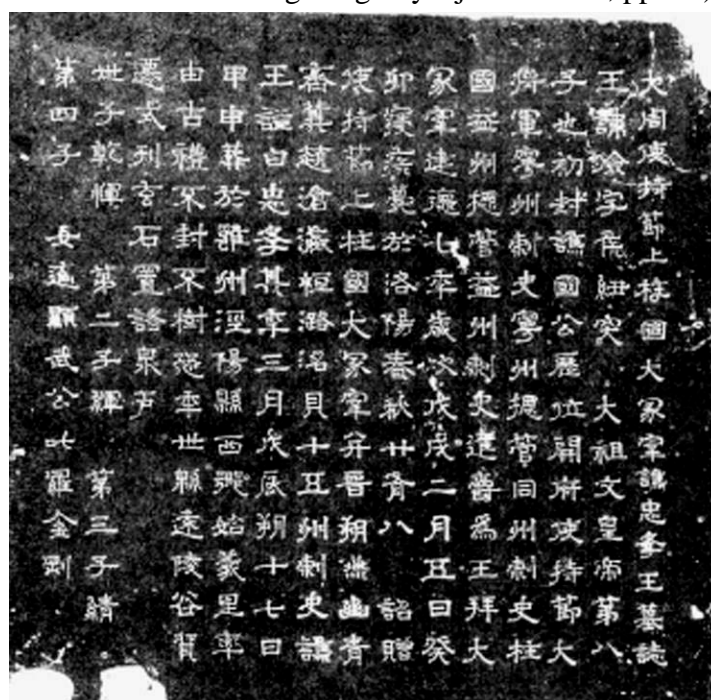 大周使持節上柱國大冢宰譙忠孝王墓誌
王諱儉字侯紐突 大祖文皇帝第八
子也初封譙國公歷位開府使持節大
將軍寧州刺史寧州總管同州刺史柱
國益州總管益州刺史進爵爲王拜大
冢宰建德七年歲次戊戌二月五日癸
卯寢疾薨於洛陽春秋廿有八 詔贈
使持節上柱國大冢宰并晉朔燕幽青
齊冀趙滄瀛恒潞洺貝十五州刺史譙
王謚曰忠孝其年三月戊辰朔十七日
甲申葬於雍州涇陽縣西鄉始義里率
由古禮不封不樹恐年世綿遠陵谷貿
遷式刊玄石置諸泉戶
世子乾惲 第二子緷 第三子績
第四子 女適顯武公叱羅金剛